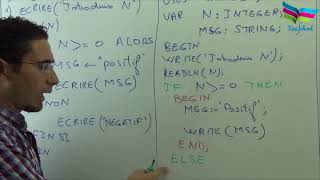 ECRIRE('Introduire N')
N >= 0 ALORS
MSG ← 'positif'
ECRIRE(MSG)
ECRIRE('NEGATIF')
VAR N: INTEGER;
MSG: STRING;
BEGIN
WRITE('Introduire N');
READLN(N);
IF N >= 0 THEN
BEGIN
MSG:='Positif';
WRITE(MSG)
END;
ELSE